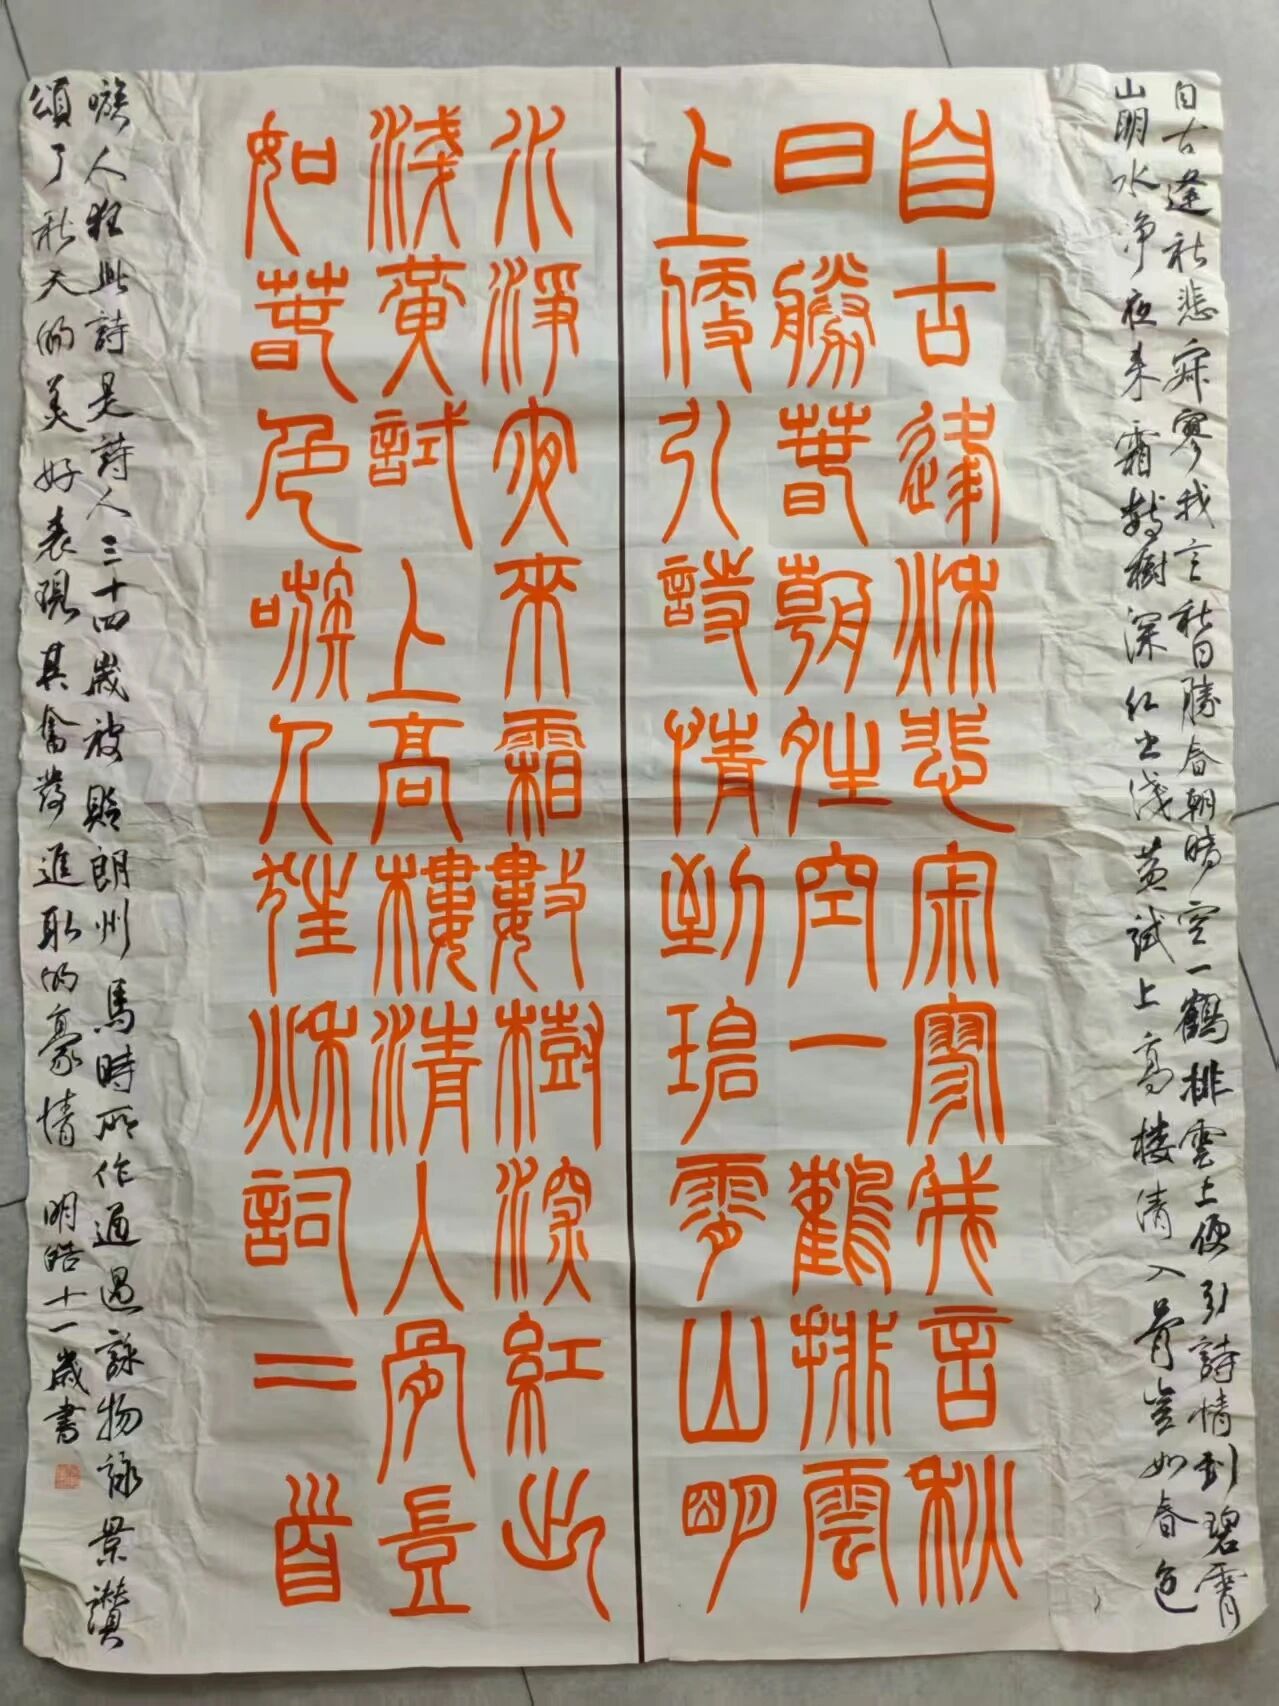 自古逢秋悲寂寥我言秋日勝春朝晴空一鶴排雲上便引詩情到碧霄
山明水净夜来霜數樹深红出浅黄試上高楼清入骨豈如春色
自古逢秋悲寂寥我言秋
日勝春朝晴空一鶴排雲
上便引詩情到碧霄山明
水淨夜來霜數樹深紅出
淺黄試上高樓清入骨豈
如春色嗾人狂秋詞二首
嗾人狂此詩是詩人三十四歲被貶朗州馬時所作通過詠物詠景讚
頌了秋天的美好表現其奮發進取的豪情 明皓十一歲書